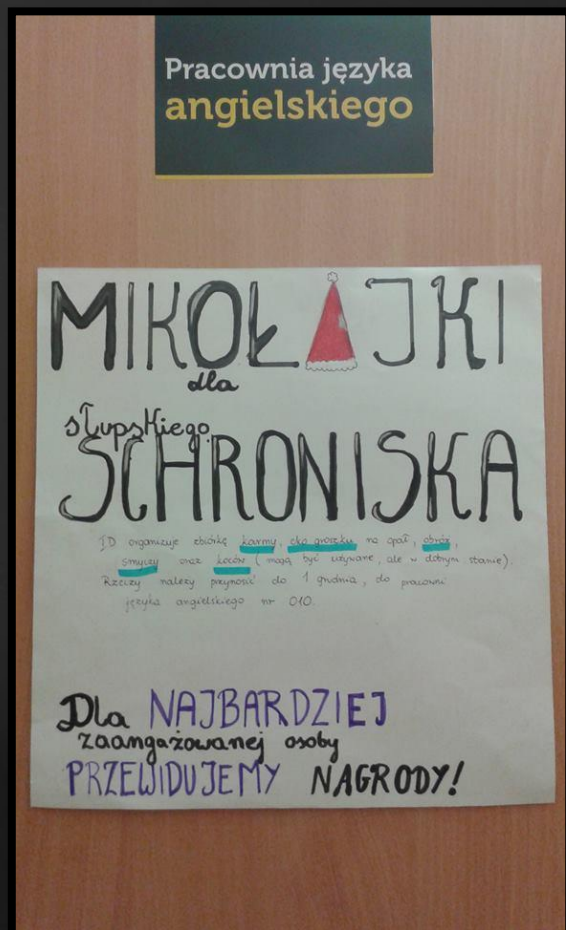 Pracownia języka
angielskiego
MIKOŁAJKI
dla
słupskiego
SCHRONISKA
1D organizuje zbiórkę karmy, eko groszku na opał, obroż,
smyczy oraz koców (mogą być używane, ale w dobrym stanie).
Rzeczy należy przynosić do 1 grudnia, do pracowni
języka angielskiego nr 010.
Dla NAJBARDZIEJ
zaangażowanej osoby
PRZEWIDUJEMY NAGRODY!